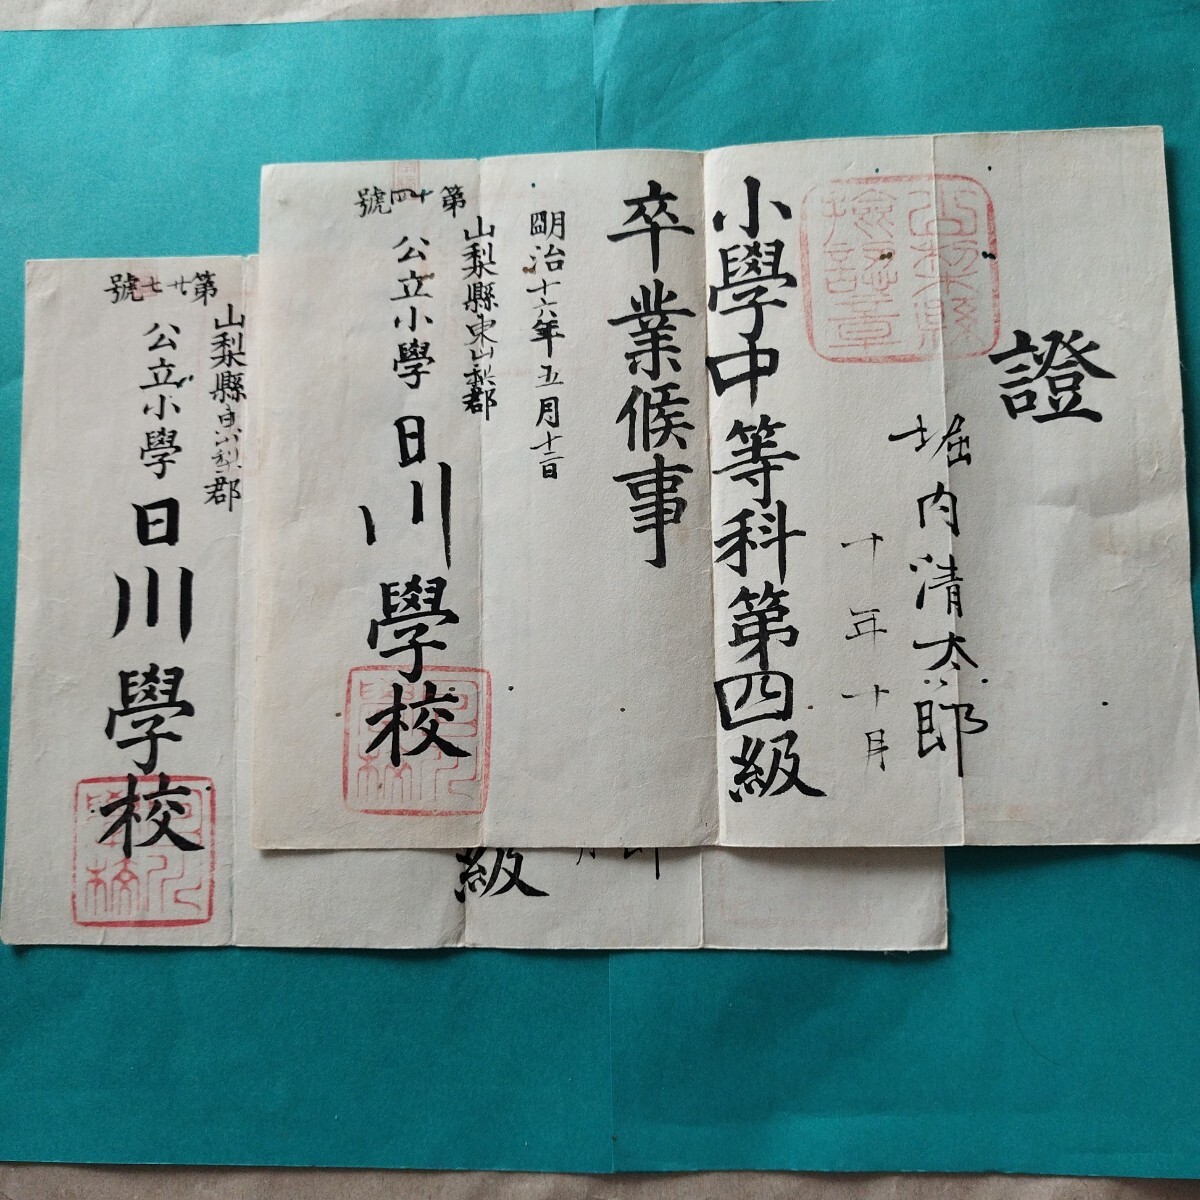 證
堀内清太郎
十年十月
山梨縣
小學中等科第四級
卒業候事
朙治十六年五月十二日
山梨縣東山梨郡
公立小學日川學校
第十四號
日川
學校
級
山梨縣東山梨郡
公立小學日川學校
第廿七號
日川
學校